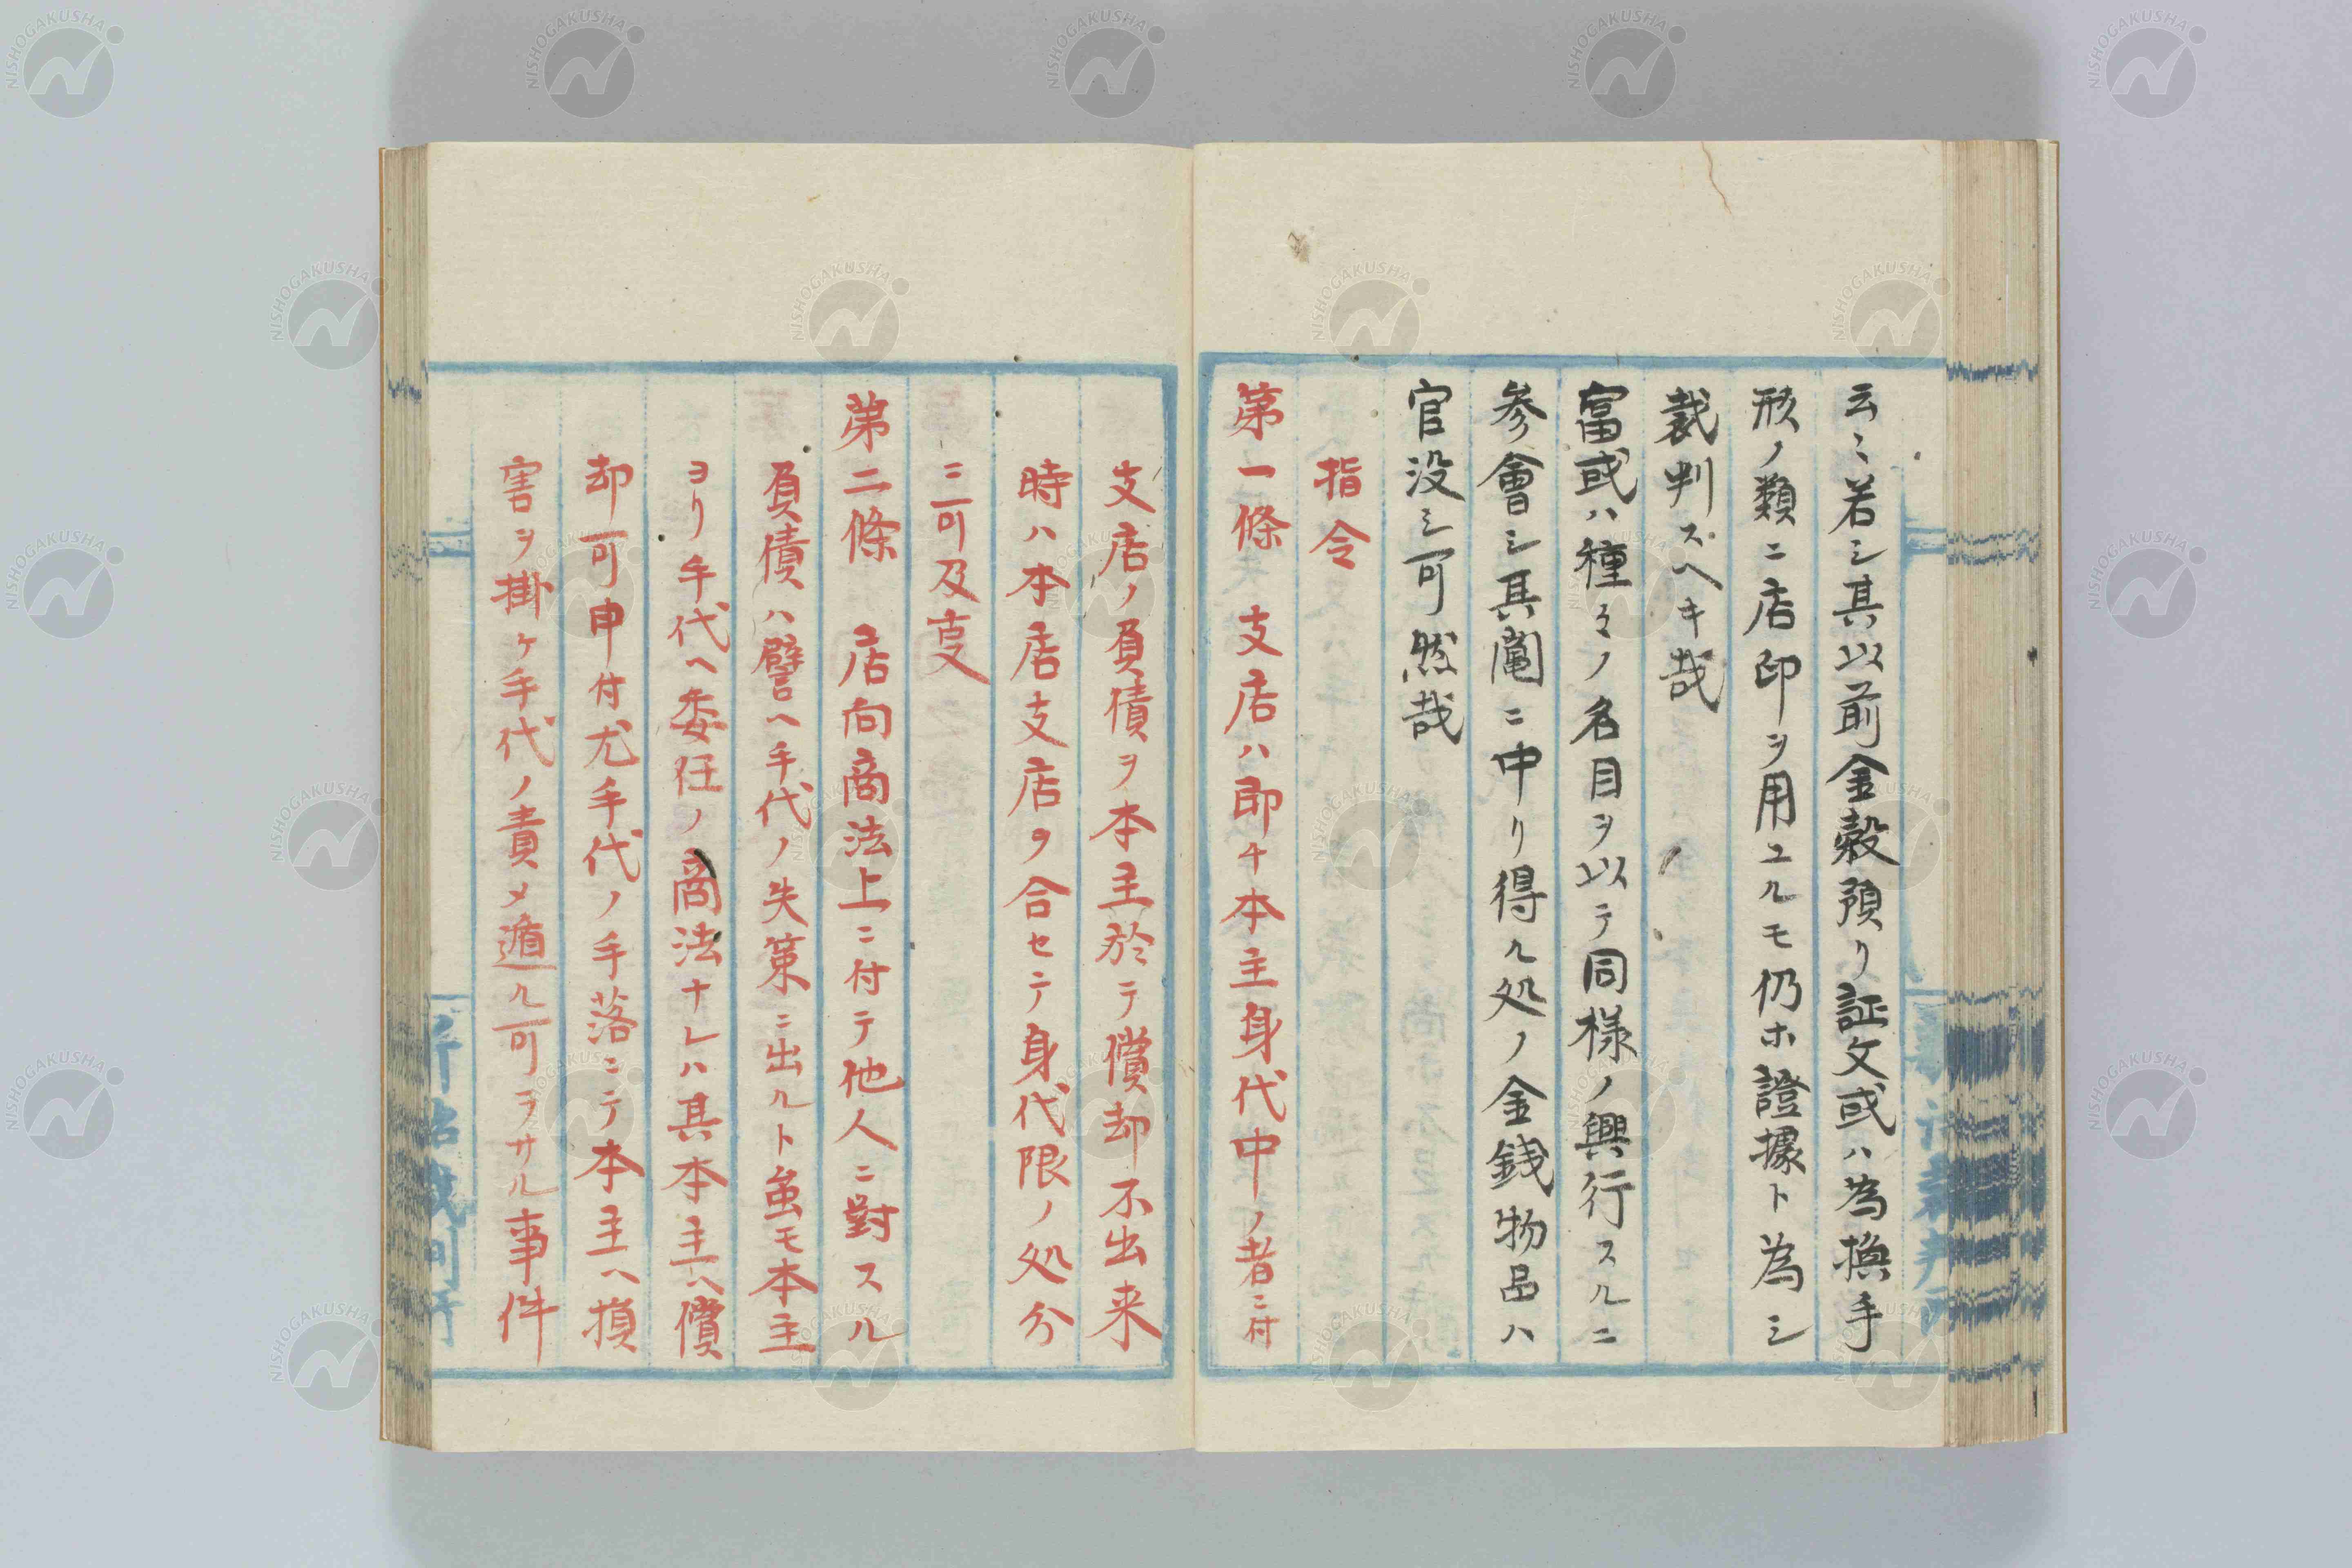 云〻若シ其以前金穀預リ証文或ハ為換手
形ノ類ニ店印ヲ用ユルモ仍ホ證據ト為シ
裁判スヘキ哉
富或ハ種々ノ名目ヲ以テ同様ノ興行スルニ
参會シ其鬮ニ中リ得ル処ノ金銭物品ハ
官没シ可然哉
指令
第一條 支店ハ即チ本主身代中ノ者ニ付
支店ノ負債ヲ本主於テ償却不出来
時ハ本店支店ヲ合セテ身代限ノ処分
ニ可及亊
第二條 店向商法上ニ付テ他人ニ對スル
負債ハ譬ヘ手代ノ失策ニ出ルト虽モ本主
ヨリ手代ヘ委任ノ商法ナレハ其本主ヘ償
却可申付尤手代ノ手落ニテ本主ヘ損
害ヲ掛ケ手代ノ責メ遁ル可ラサル事件
NISHOGAKUSHA